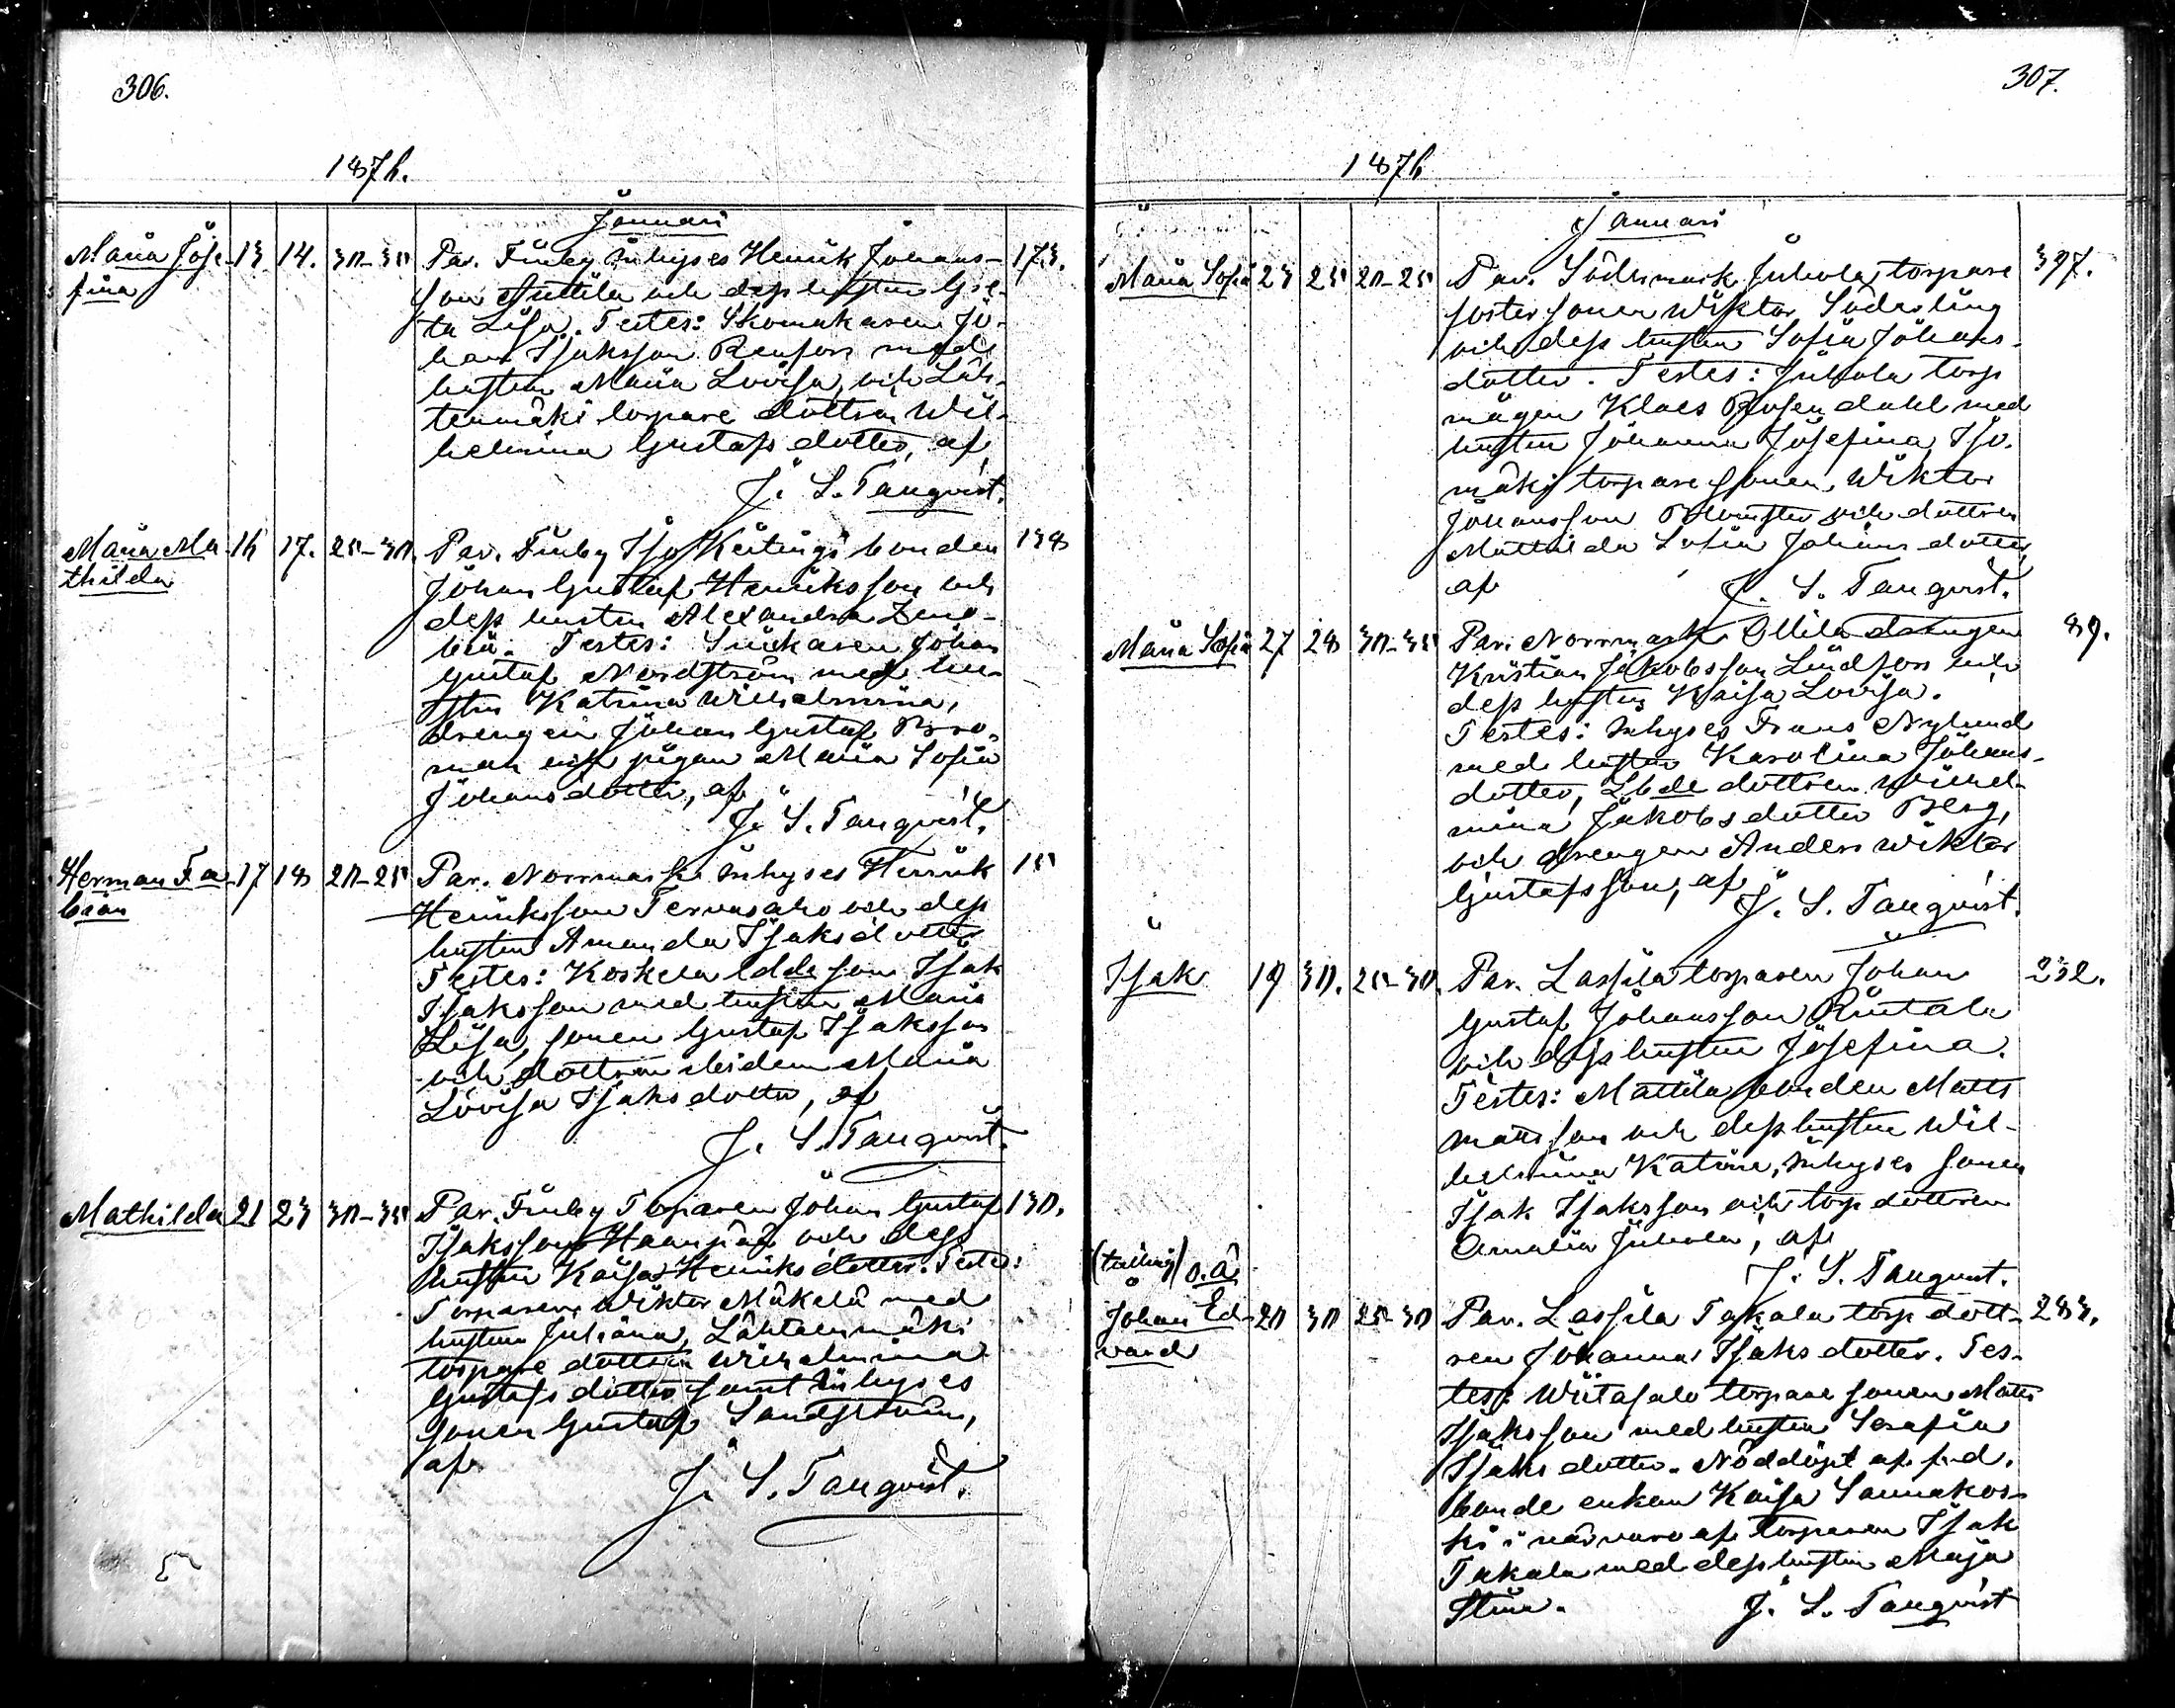 306.
1876.
Januari
Maria Jose- 13 14. 30-35 Par. Finby Inhyses Henrik Johans- 173.
fina
son Anttila och dess hustru Gre-
ta Lisa. Testes: Skomakaren Jo-
han Isaksson Renfors med
hustru Maria Lovisa, och Läh-
tenmäki torpare dottren Wil-
helmina Gustafsdotter, af
J. S. Tanqvist.
Maria Ma- 16 17. 25-30. Par. Finby Iso Keitingi bonden 138
thilda
Johan Gustaf Henriksson och
dess hustru Alexandra Zeno-
bia. Testes: Snickaren Johan
Gustaf Nordström med hu-
stru Katrina Wilhelmina,
drengen Johan Gustaf Bro-
man och pigan Maria Sofia
Johansdotter, af
J. S. Tanqvist.
Herman Fa- 17 18 20-25 Par. Norrmark Inhyses Henrik 15
bian
Henriksson Tervasaho och dess
hustru Amanda Isaksdotter
Testes: Koskela lbde son Isak
Isaksson med hustru Maria
Lisa, sonen Gustaf Isaksson
och dottren Maria
Lovisa Isaksdotter, af
J. S. Tanqvist.
Mathilda 21 23 30-35 Par. Finby Torparen Johan Gustaf 130.
Isaksson Haanpää och dess
hustru Kaisa Henriksdotter. Testes:
Torparen Wiktor Mäkelä med
hustru Juliana, Lähteenmäki
torpare dottren Wilhelmina
Gustafsdotter samt Inhyses
sonen Gustaf Sandström,
af
J. S. Tanqvist.
307.
1876
Januari
Maria Sofia 23 25 20-25 Par. Södermark Juhola torpare 397.
foster sonen Wiktor Söderling
och dess hustru Sofia Johans-
dotter. Testes: Juhola torp
mågen Klaes Rosendahl med
hustru Johanna Josefina, Iso-
mäki torpare sonen Wiktor
Johansson Blomster och dottren
Mathilda Sofia Johansdotter,
af J. S. Tanqvist.
Maria Sofia 27 28 30-35 Par. Norrmark Ollila drengen 89.
Kristian Jakobsson Lindfors och
dess hustru Kaisa Lovisa.
Testes: Inhyses Frans Nylund
med hustru Karolina Johans-
dotter, Lbde dottren Wilhel-
mina Jakobsdotter Berg,
och drengen Anders Wiktor
Gustafsson, af
J. S. Tanqvist.
Isak 19 30. 25-30. Par. Lassila torparen Johan 232.
Gustaf Johansson Rintala
och dess hustru Josefina.
Testes: Mattila bonden Matts
Mattsson och dess hustru Wil-
helmina Katrina, Inhyses sonen
Isak Isaksson och torp dottren
Amalia Juhola, af
J. S. Tanqvist.
(tvilling) o.ä.
Johan Ed- 20 30 25-30 Par. Lassila Takala torp dott- 283.
vard
ren Johanna Isaksdotter. Tes-
tes: Wiitasalo torpare sonen Matts
Isaksson med hustru Serafia
Isaksdotter. Nöddöpt af f.d.
bonde enkan Kaisa Sannakos-
ki i närvaro af torparen Isak
Takala med dess hustru Maja
Stina. J. S. Tanqvist